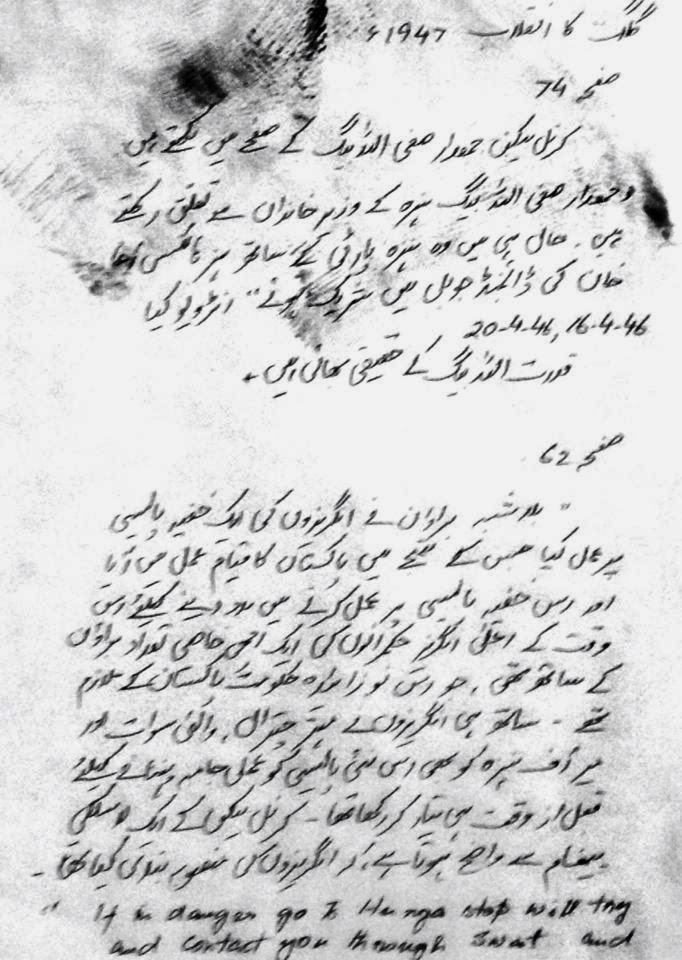 گلگت کا انقلاب 1947ء
صفحہ 74
کرنل بیکن جمعدار صفی اللہ بیگ کے صفحے میں لکھتے ہیں
"جمعدار صفی اللہ بیگ ہنزہ کے وزیر خاندان سے تعلق رکھتے
ہیں۔ حال ہی میں وہ ہنزہ پارٹی کے ساتھ ہز ہائنس آغا
خان کی ڈائمنڈ جوبلی میں شریک ہوئے" انٹرویو کیا
20-4-46, 16-4-46
قدرت اللہ بیگ کے حقیقی بھائی ہیں۔
صفحہ 62
" بلاشبہ براؤن نے انگریزوں کی ایک خفیہ پالیسی
پر عمل کیا جس کے نتیجے میں پاکستان کا قیام عمل میں آیا
اور اس خفیہ پالیسی پر عمل کرنے میں مدد دینے کیلئے اس
وقت کے اعلیٰ انگریز حکمرانوں کی ایک اچھی خاصی تعداد براؤن
کے ساتھ تھی۔ جو اس نوزائدہ حکومت پاکستان کے ملازم
تھے ۔ ساتھ ہی انگریزوں نے مہتر چترال، والئی سوات اور
میر آف ہنزہ کو بھی اس نئی پالیسی کو عملی جامہ پہنانے کیلئے
قبل از وقت ہی تیار کر رکھا تھا۔ کرنل بیکن کے ایک
پیغام سے واضح ہوتا ہے کہ انگریزوں کی منصوبہ بندی کیا تھی۔
" If in danger go to Hunza stop will try
and contact you through Swat and